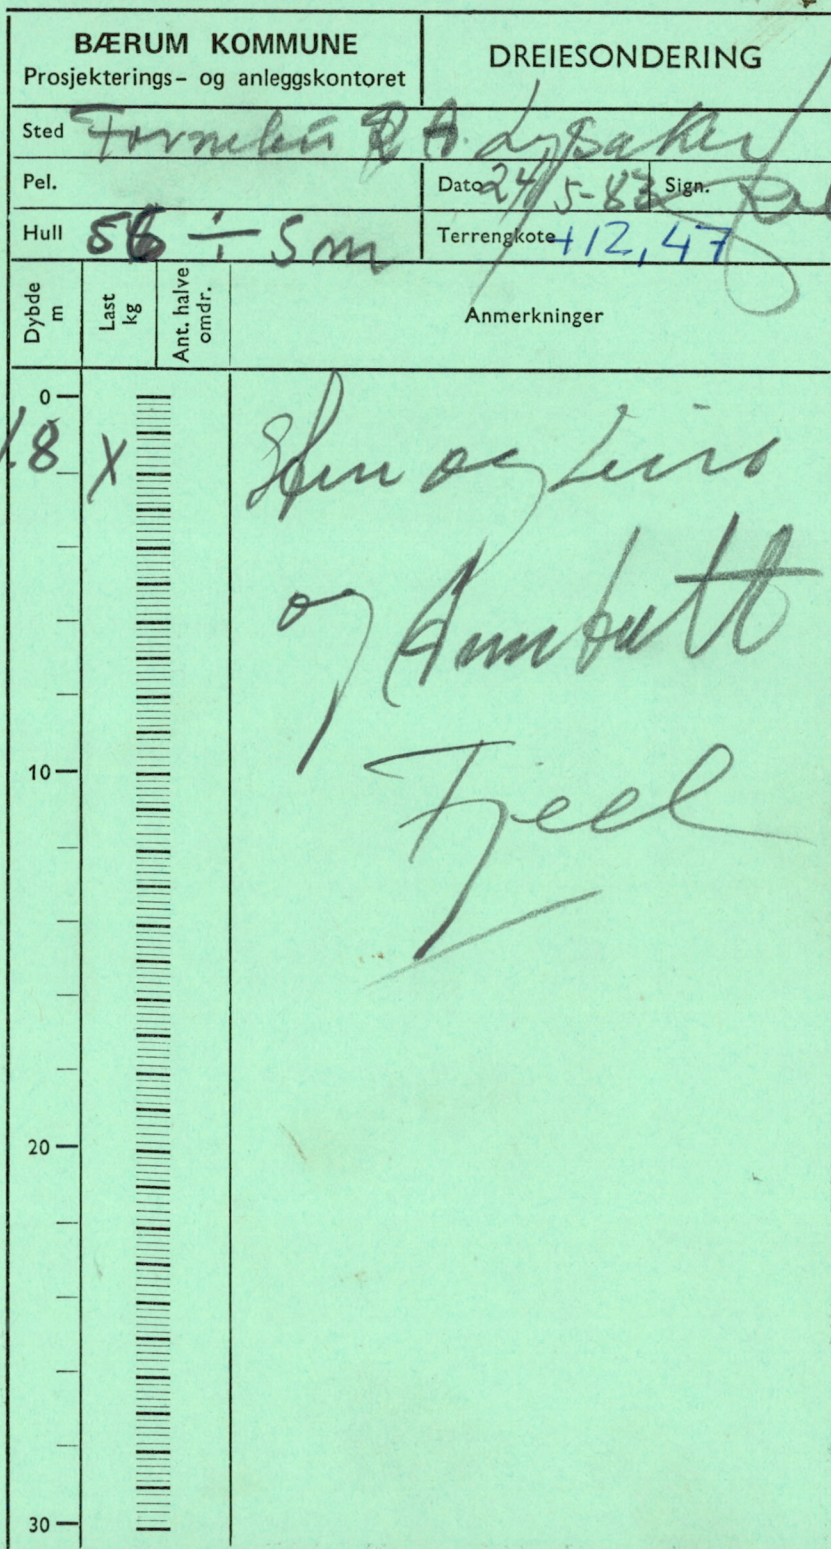 BÆRUM KOMMUNE
Prosjekterings- og anleggskontoret
DREIESONDERING
Sted Fornebu R A. Lysaker
Pel.
Dato 24/5-83 Sign.
Hull 56 ÷ 5 m
Terrengkote +12,47
Dybde m
Last kg
Ant. halve omdr.
Anmerkninger
0
1.8 X
Sten og Leire
og
10
Fjell
20
30